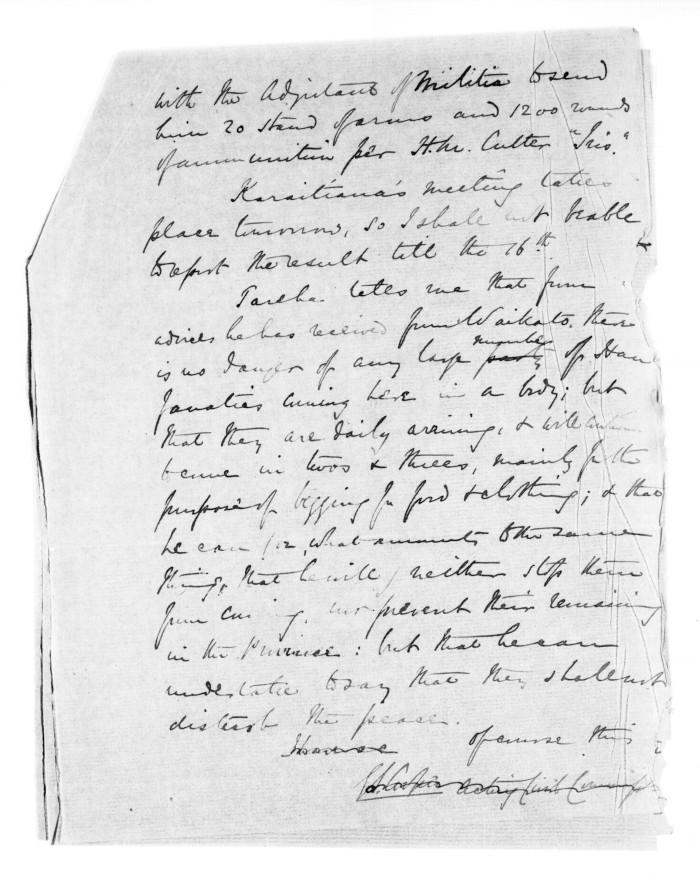 with the Adjutant of Militia to send
him 20 stand of arms and 1200 rounds
of ammunition per H.M. Cutter "Iris."
Karaitiana's meeting takes
place tomorrow, so I shall not be able
to report the result till the 16th
Tareha tells me that from
advices he has received from Waikato, there
is no danger of any large party number of Hau
fanatics coming here in a body; but
that they are daily arriving, & will
to come in twos & threes, mainly for the
purpose of begging for food & clothing; & that
he can (or, what amounts to the same
thing, that he will) neither stop them
from coming, nor prevent their remaining
in the Province: but that he can
undertake to say that they shall not
disturb the peace.
of course this
GS Cooper Acting Civil